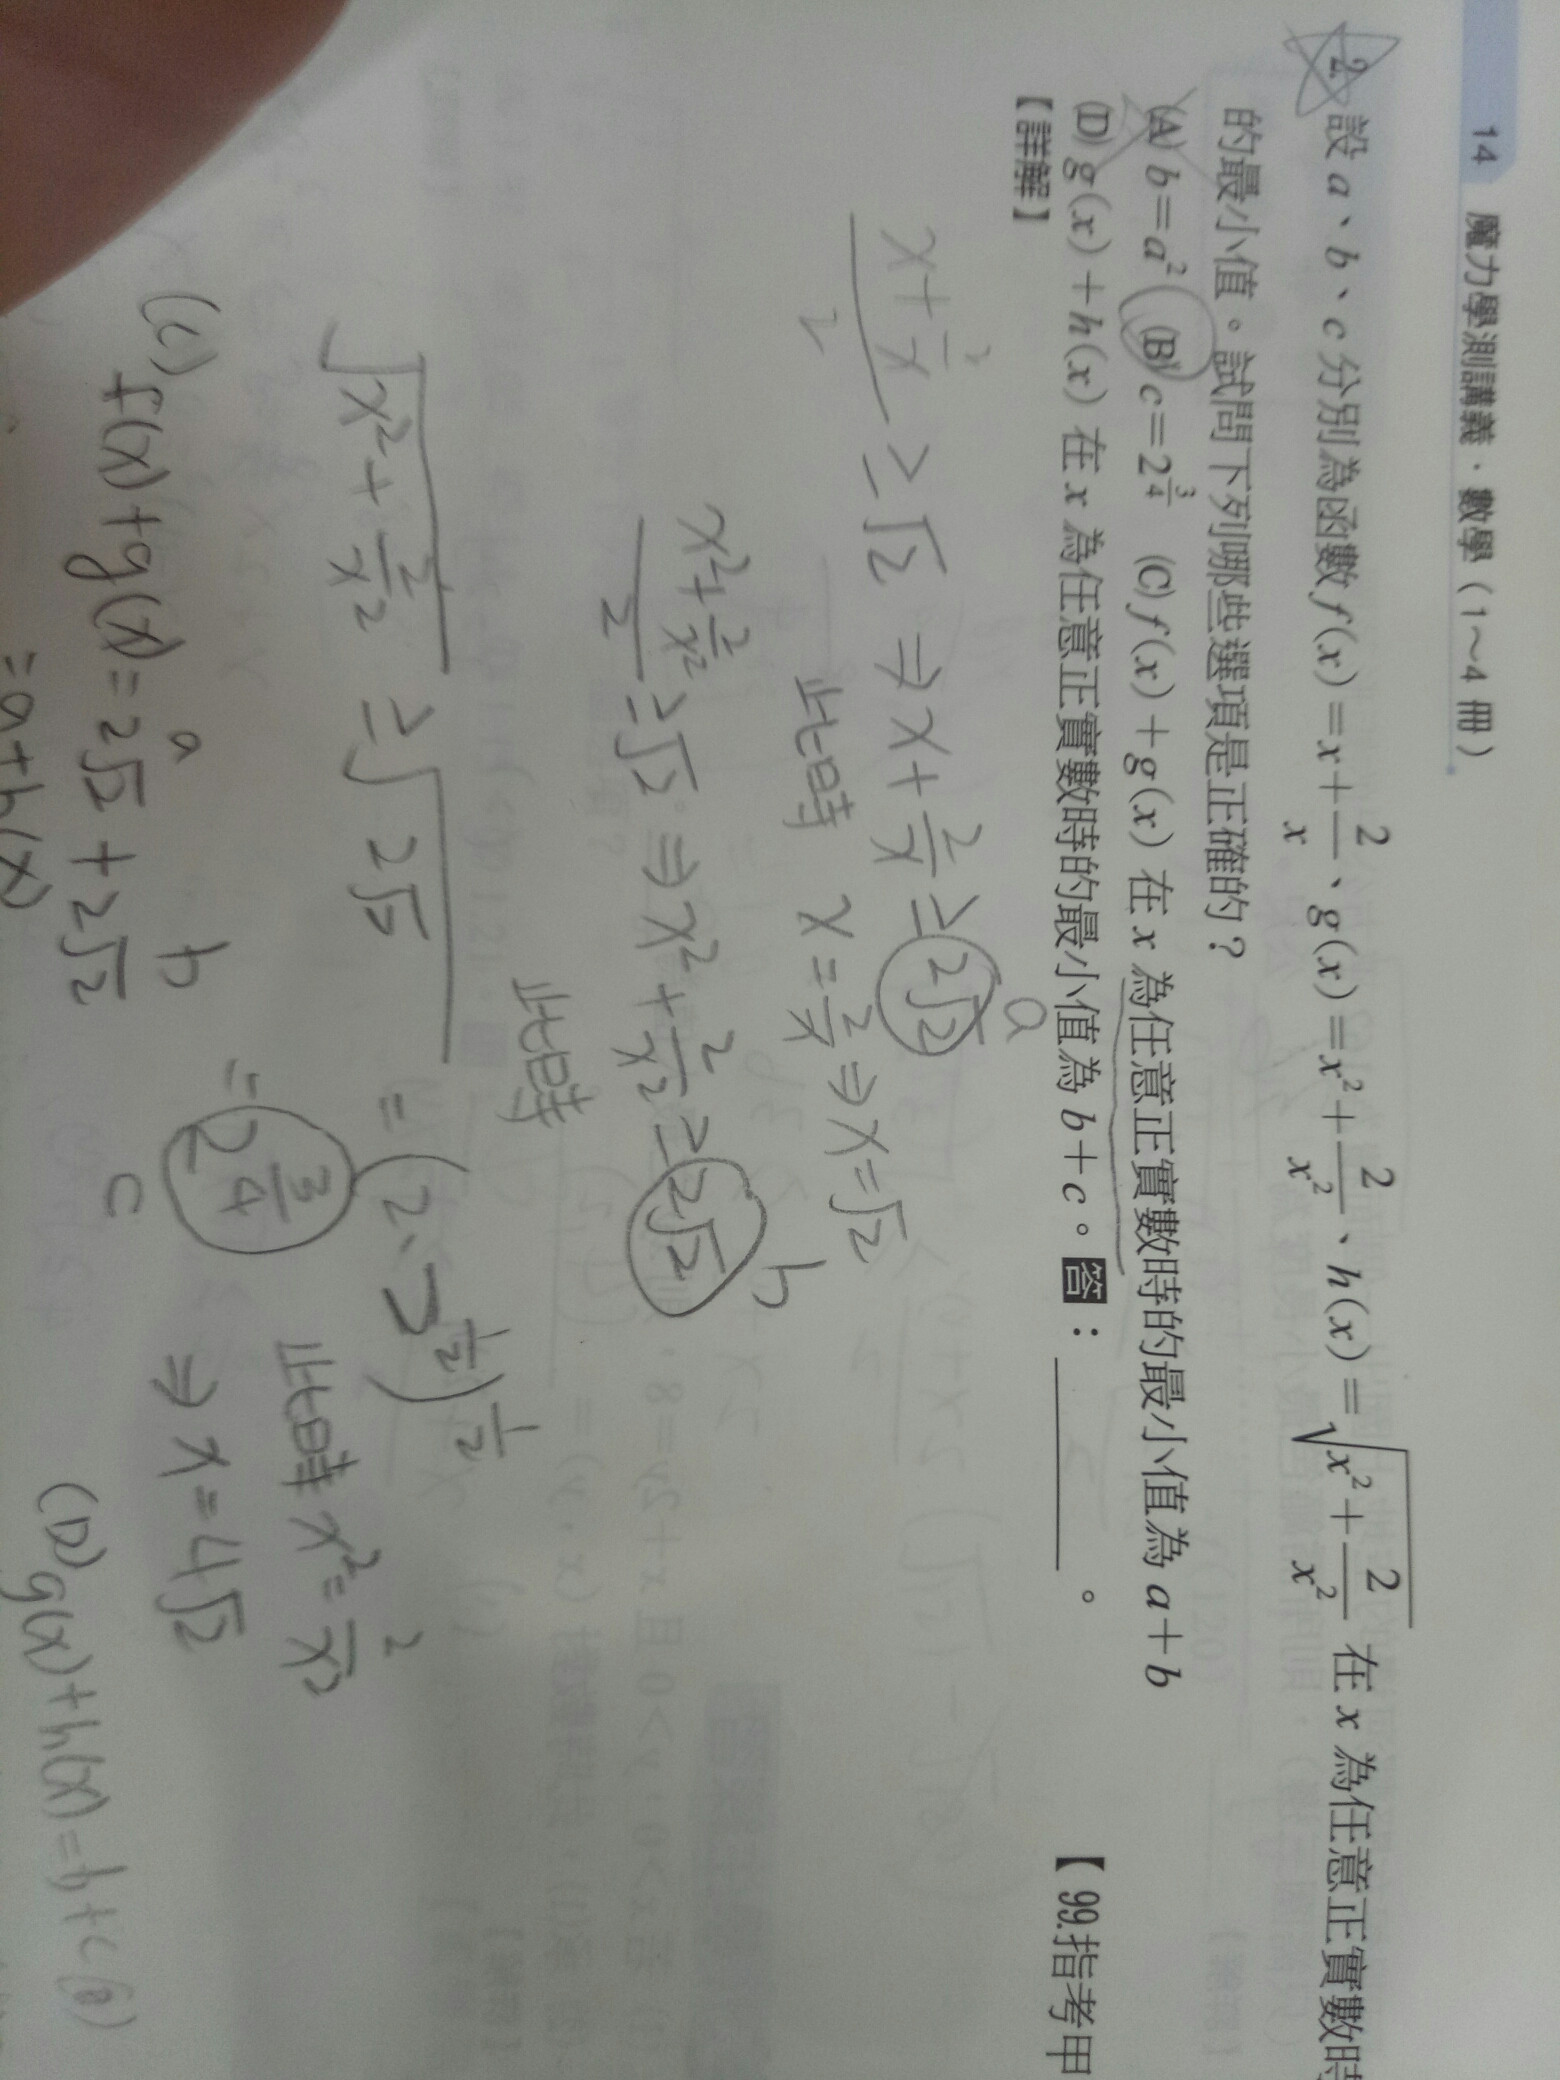 14 魔力學測講義·數學(1～4 冊)
2. 設 a、b、c 分別為函數 f(x)=x+2/x、g(x)=x²+2/x²、h(x)=√(x²+2/x²) 在 x 為任意正實數時
的最小值。試問下列哪些選項是正確的?
(A) b=a² (B) c=2^(3/4) (C) f(x)+g(x) 在 x 為任意正實數時的最小值為 a+b
(D) g(x)+h(x) 在 x 為任意正實數時的最小值為 b+c。答:______。 【99.指考甲
【詳解】
(x+2/x)/2 ≥ √2 ⇒ x+2/x ≥ 2√2 a
此時 x=2/x ⇒ x=√2
(x²+2/x²)/2 ≥ √2 ⇒ x²+2/x² ≥ 2√2 b
此時
√(x²+2/x²) ≥ √(2√2) = (2·2^(1/2))^(1/2)
= 2^(3/4) c
此時 x²=2/x²
⇒ x=4√2
(C) f(x)+g(x)=2√2+2√2
a b
=a+b(x)
(D) g(x)+h(x)=b+c